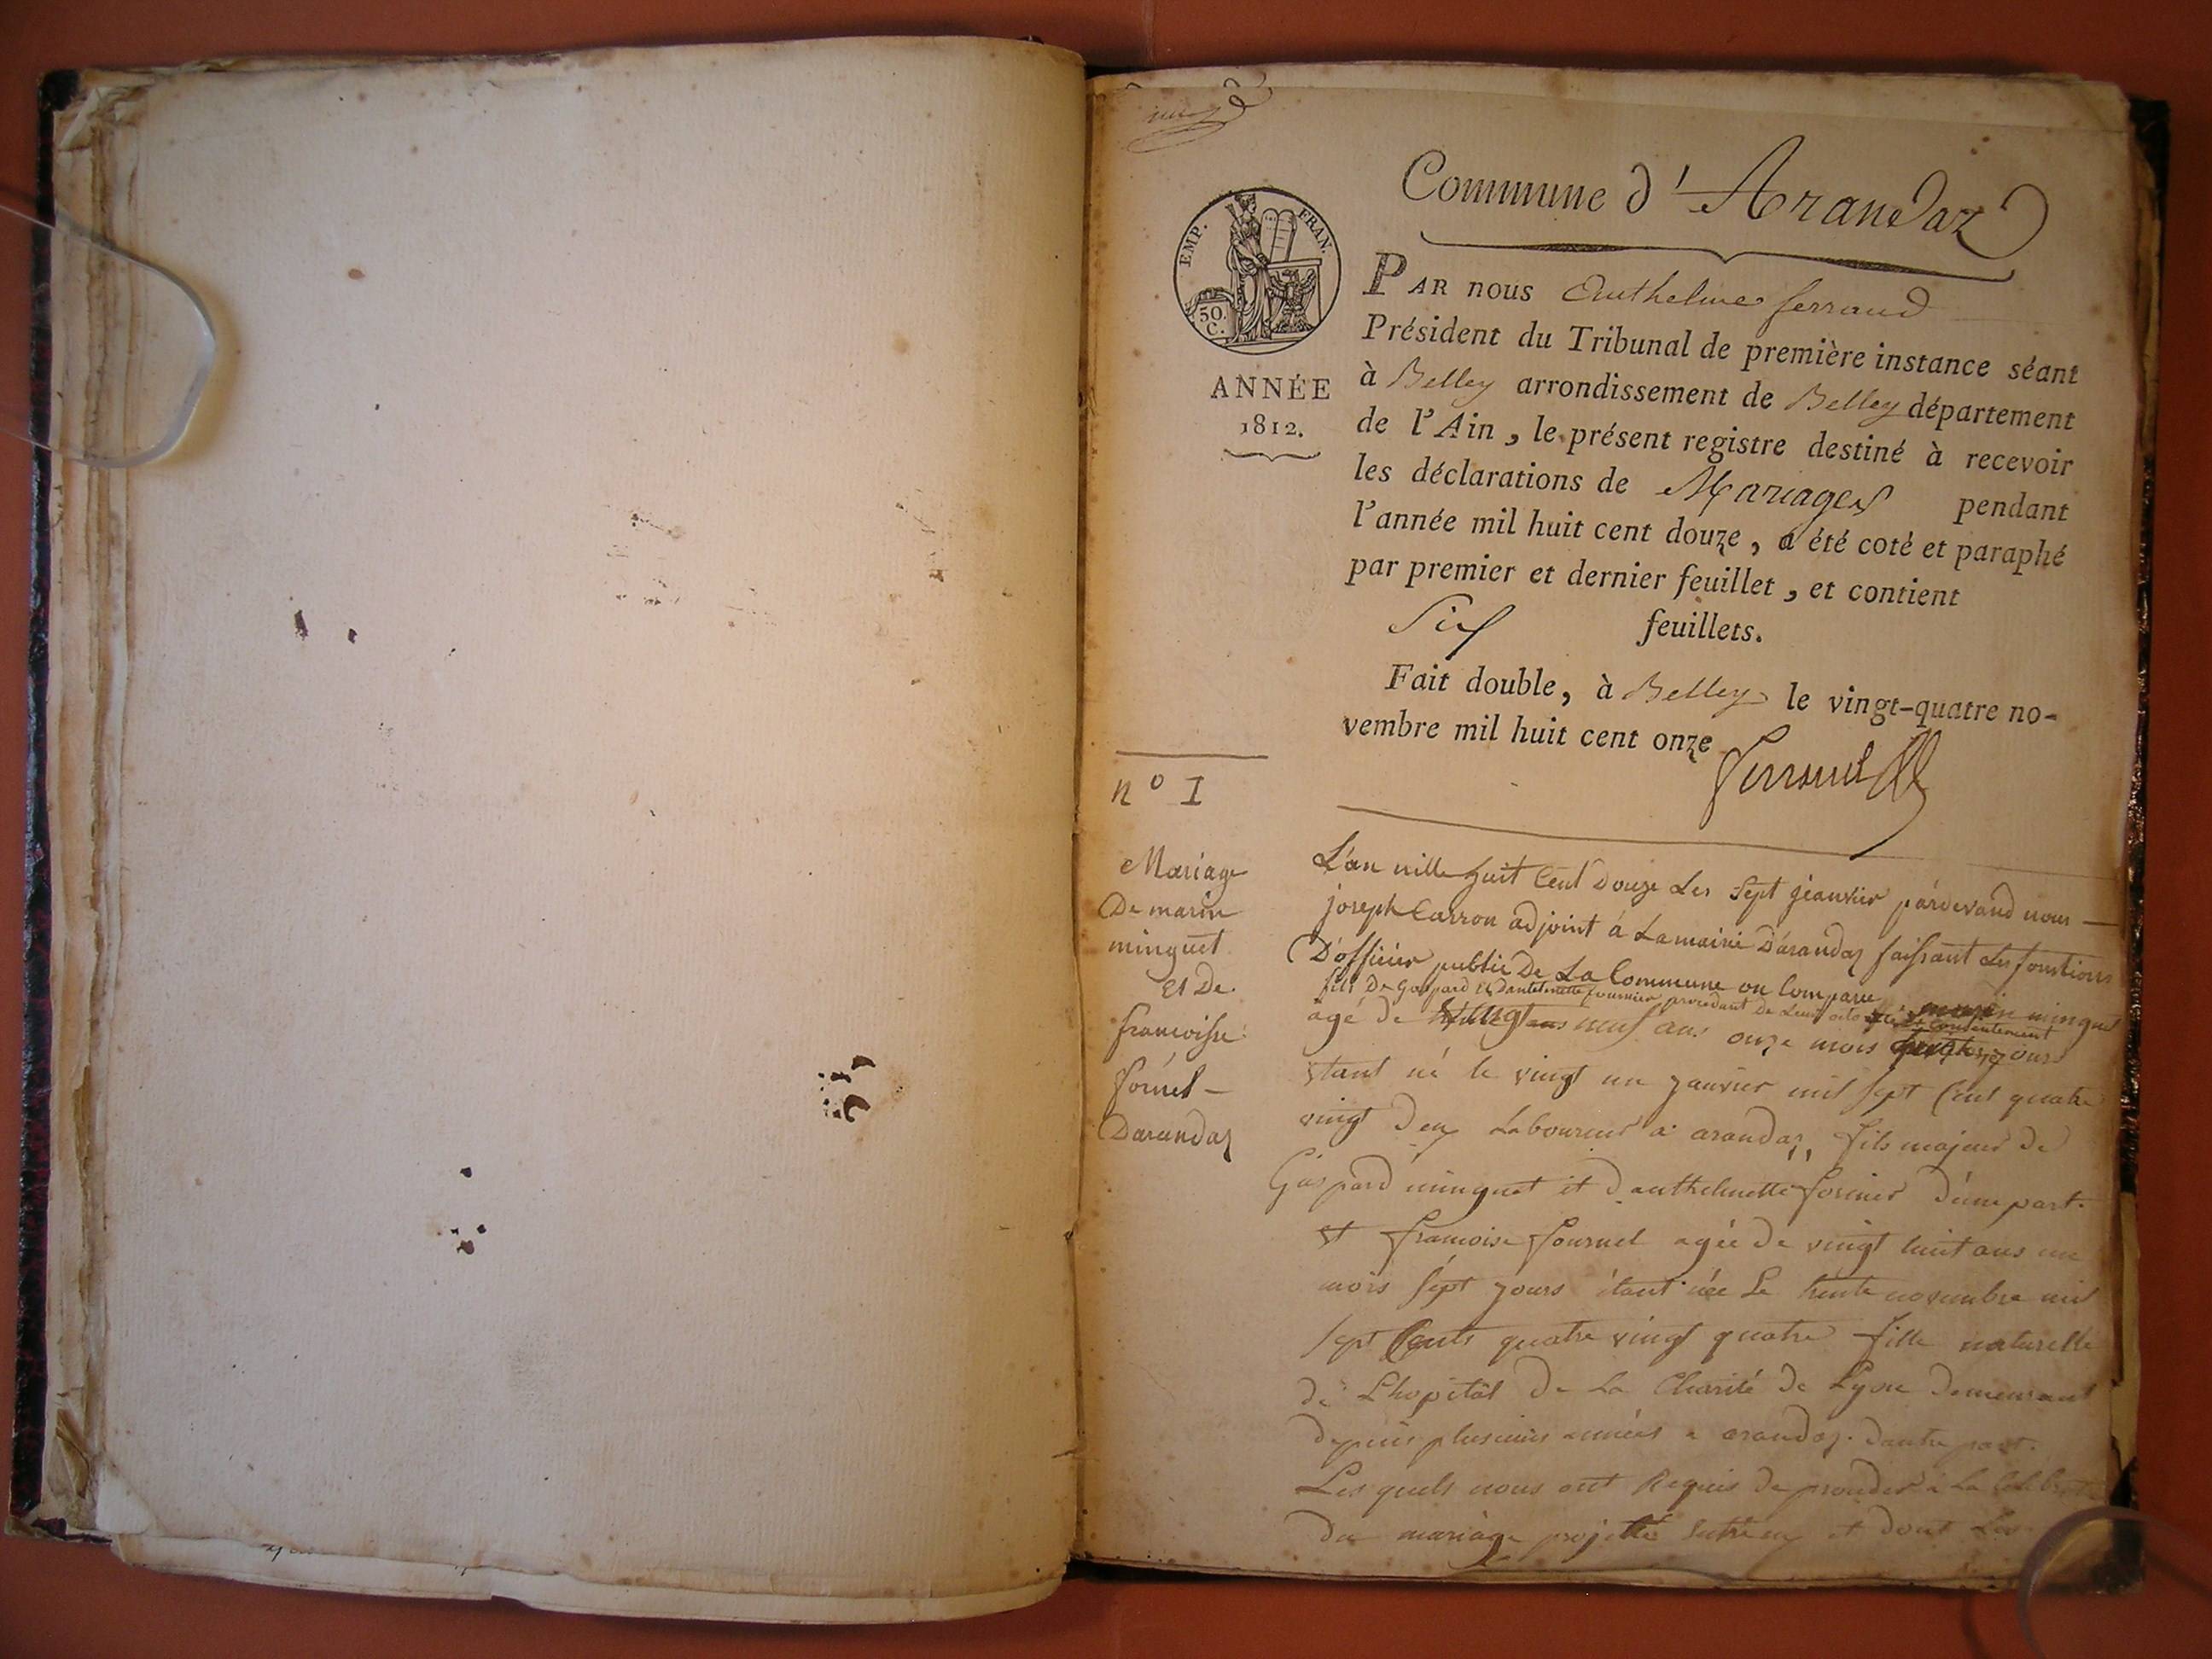 Commune d'Arandaz
EMP. FRAN.
50.
C.
ANNÉE
1812.
PAR nous Anthelme ferrand
Président du Tribunal de première instance séant
à Belley arrondissement de Belley département
de l'Ain, le présent registre destiné à recevoir
les déclarations de Mariages pendant
l'année mil huit cent douze, a été coté et paraphé
par premier et dernier feuillet, et contient
Six feuillets.
Fait double, à Belley le vingt-quatre no-
vembre mil huit cent onze
n° I
Mariage
De marin
minguet
et De
francoise
fornel
Darandaz
L'an mille huit Cent Douze Les Sept jeanvier pardevand nous
joseph Carron adjoint á Lamairie D'arandaz faissant Les fonctions
D'officier public De La Commune on Comparu marin minguet
fils De Gaspard et dantelmette fournier procedant De Leur consentement
agé de vingt neuf ans onze mois jours
etant né le vingt un janvier mil sept Cent quatre
vingt deux Laboureur a arandaz, fils majeur de
Gaspard minguet et d'anthelmette fornier d'une part.
et francoise fournel agée de vingt huit ans un
mois sept jours étant née Le trente novembre mil
sept Cents quatre vingt quatre fille naturelle
de L'hopital De La Charité de Lyon demeurant
depuis plusieurs années a arandaz. dautre part.
Les quels nous ont Requis De proceder a La
du mariage projetté entre eux et dont Les